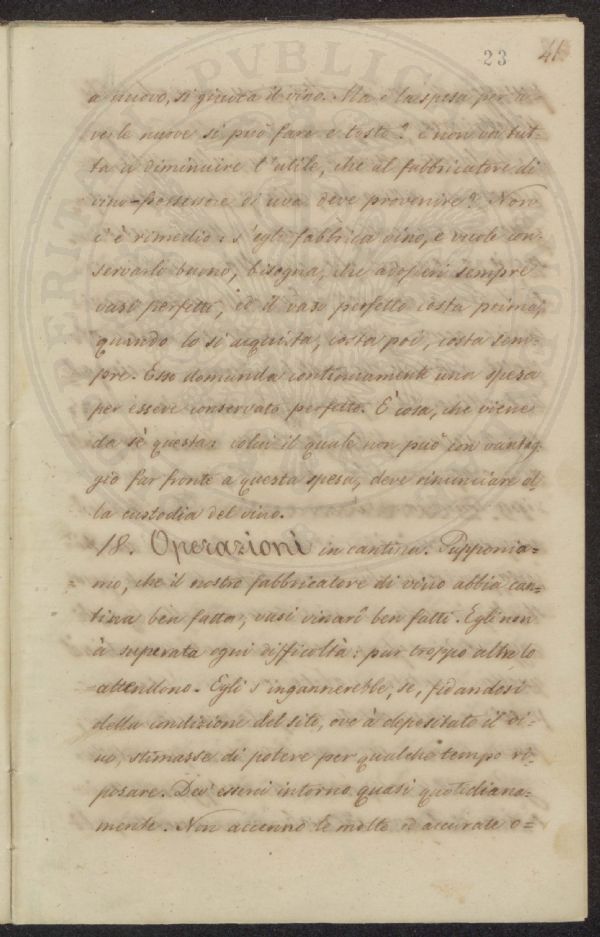 23 41
a nuovo, si giuoca il vino. Ma e la spesa per
ve le nuove si può fare e tosto? e non va tut-
ta a diminuire l'utile, che al fabbricatore di
vino-possessore di uva deve provenire? Non
c'è rimedio: s'egli fabbrica vino, e vuole con-
servarlo buono, bisogna, che adoperi sempre
vasi perfetti, ed il vaso perfetto costa prima,
quando lo si acquista, costa poi, costa sem-
pre. Esso domanda continuamente una spesa
per essere conservato perfetto. È cosa, che viene
da sè questa: colui il quale non può con vantag-
gio far fronte a questa spesa, deve rinunciare al-
la custodia del vino.
18. Operazioni in cantina. Supponia=
mo, che il nostro fabbricatore di vino abbia can=
tina ben fatta, vasi vinarî ben fatti. Egli non
à superata ogni difficoltà: pur troppo altre lo
attendono. Egli s'ingannerebbe, se, fidandosi
della condizione del sito, ove à depositato il vi-
no, stimasse di potere per qualche tempo ri-
posare. Dev' esservi intorno quasi quotidiana-
mente. Non accenno le molte ed accurate o=